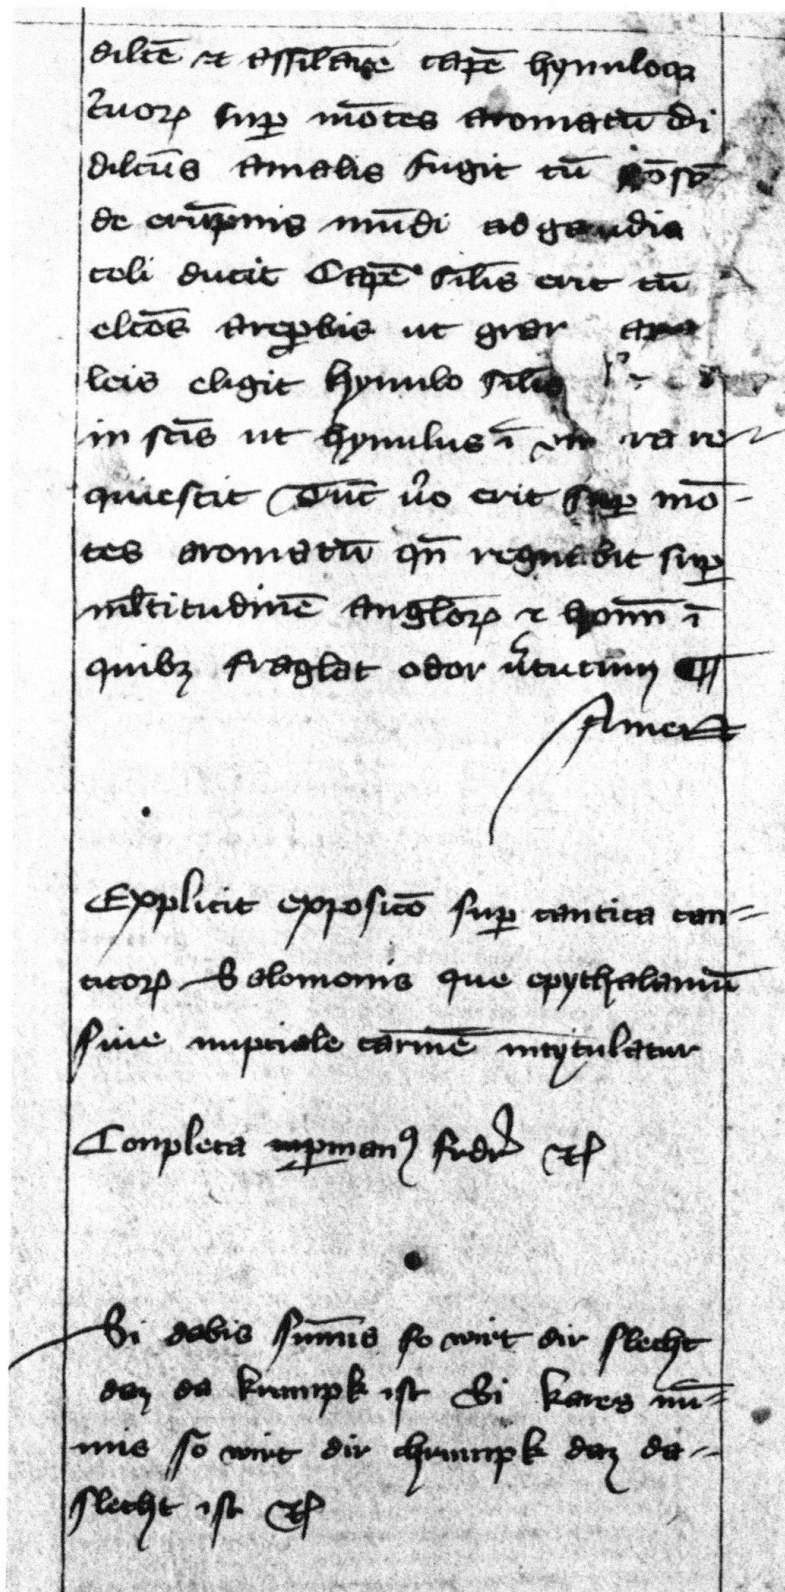 dilc̄e ⁊ assil̄are cap̄e hynuloꝝ
tuoꝝ suꝑ mōtes aromatū Di
dilc̄us amalis fugit tū
de erūpnis mūdi ad gaudia
celi ducit Cap̄e sil̄is erit tū
elc̄os ut
leis eligit hynulo sil̄is
in sc̄is ut hynulus ī re
quiescit Tūc v̄o erit suꝑ mō-
tes aromatū qn̄ regnabit suꝑ
ml̄titudinē angl̄oꝝ ⁊ hoīm ī
quibꝫ fraglat odor v̓tutum ¶
Amen
Explicit exposicō suꝑ cantica can=
ticoꝝ Salomonis que epythalamiū
siue nuptiale carmē intytulatur
Conpleta ꝑ manꝯ frdr̓ ⁊c
Si dabis sum̄is so wirt dir slecht
daz da krumpk ist Si kares nū=
mis so wirt dir chrumpk daz da=
slecht ist ⁊c